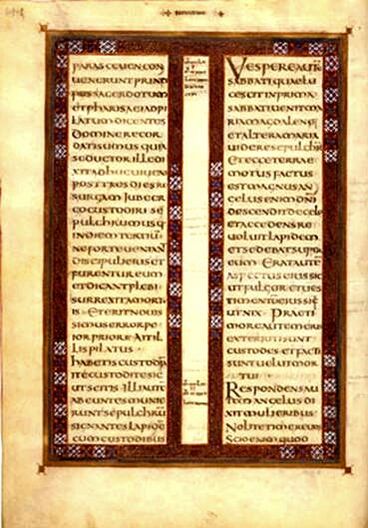 PARASCEUEN CON
UENERUNT PRINCI
PES SACERDOTUM
ET PHARISAEI AD PI
LATUM DICENTES
DOMINE RECOR
DATI SUMUS QUIA
SEDUCTOR ILLE DI
XIT ADHUC UIUENS
POST TRES DIES RE
SURGAM IUBE ER
GO CUSTODIRI SE
PULCHRUM USQ
IN DIEM TERTIŪ
NE FORTE UENIANT
DISCIPULI EIUS ET
FURENTUR EUM
ET DICANT PLEBI
SURREXIT A MORTU
IS ET ERIT NOUIS
SIMUS ERROR PE
IOR PRIORE AIT IL
LIS PILATUS
HABETIS CUSTODIĀ
ITE CUSTODITE SIC
UT SCITIS ILLI AUTĒ
ABEUNTES MUNIE
RUNT SEPULCHRŪ
SIGNANTES LAPIDĒ
CUM CUSTODIBUS
VESPERE AUTĒ
SABBATI QUAE LU
CESCIT IN PRIMA
SABBATI UENIT MA
RIA MAGDALENE
ET ALTERA MARIA
UIDERE SEPULCHRŪ
ET ECCE TERRAE
MOTUS FACTUS
EST MAGNUS AN
GELUS ENIM DNI
DESCENDIT DE CELO
ET ACCEDENS RE
UOLUIT LAPIDEM
ET SEDEBAT SUPER
EUM ERAT AUTĒ
ASPECTUS EIUS SIC
UT FULGUR ET UES
TIMENTŪ EIUS SIC
UT NIX PRAE TI
MORE AUTEM EIUS
EXTERRITI SUNT
CUSTODES ET FACTI
SUNT UELUT MOR
TUI
RESPONDENS AU
TEM ANGELUS DI
XIT MULIERIBUS
NOLITE TIMERE UOS
SCIO ENIM QUOD